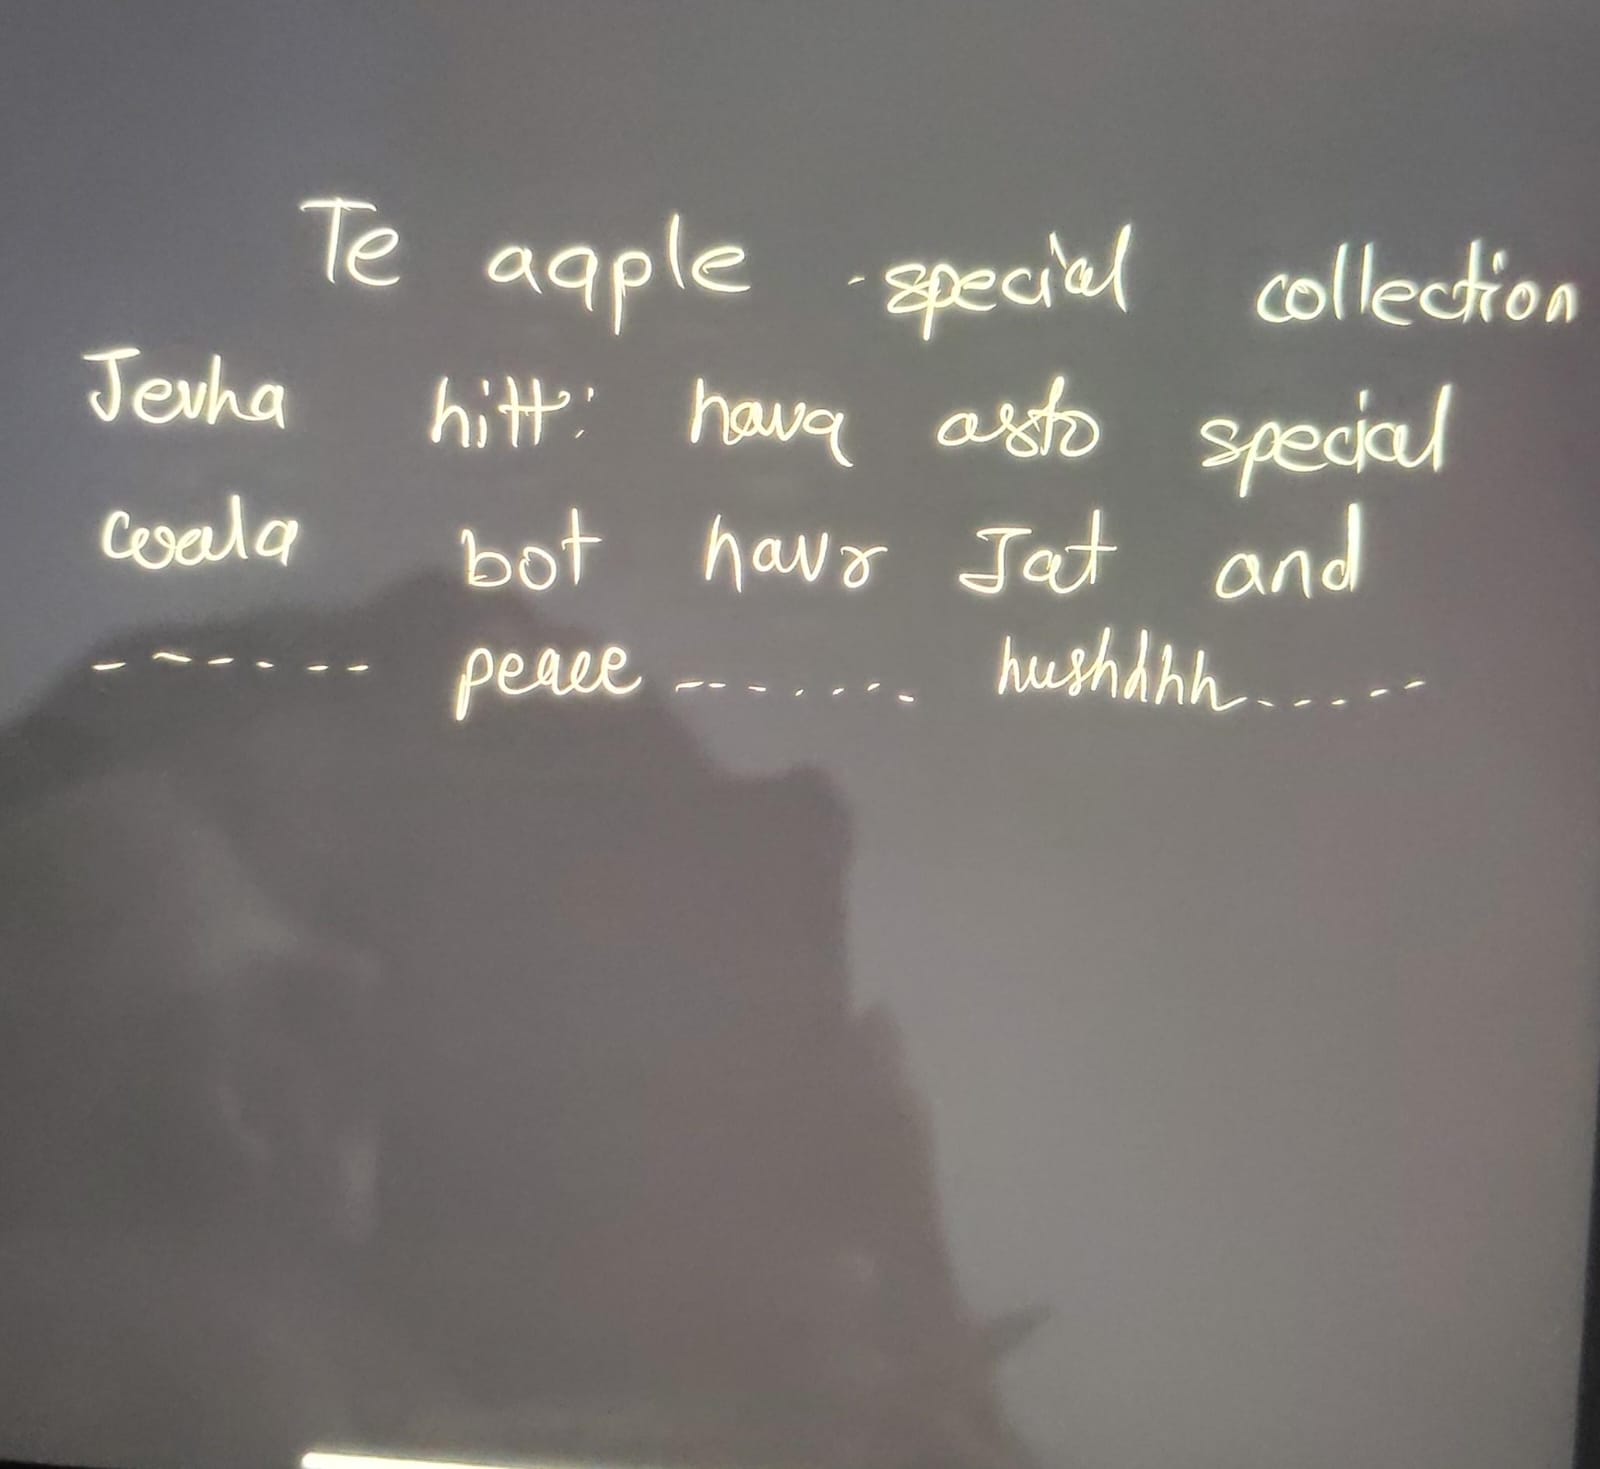 Te aaple special collection
Jevha hitt hava asto special
wala bot havr Jat and
------- peace -------- hushhhh------